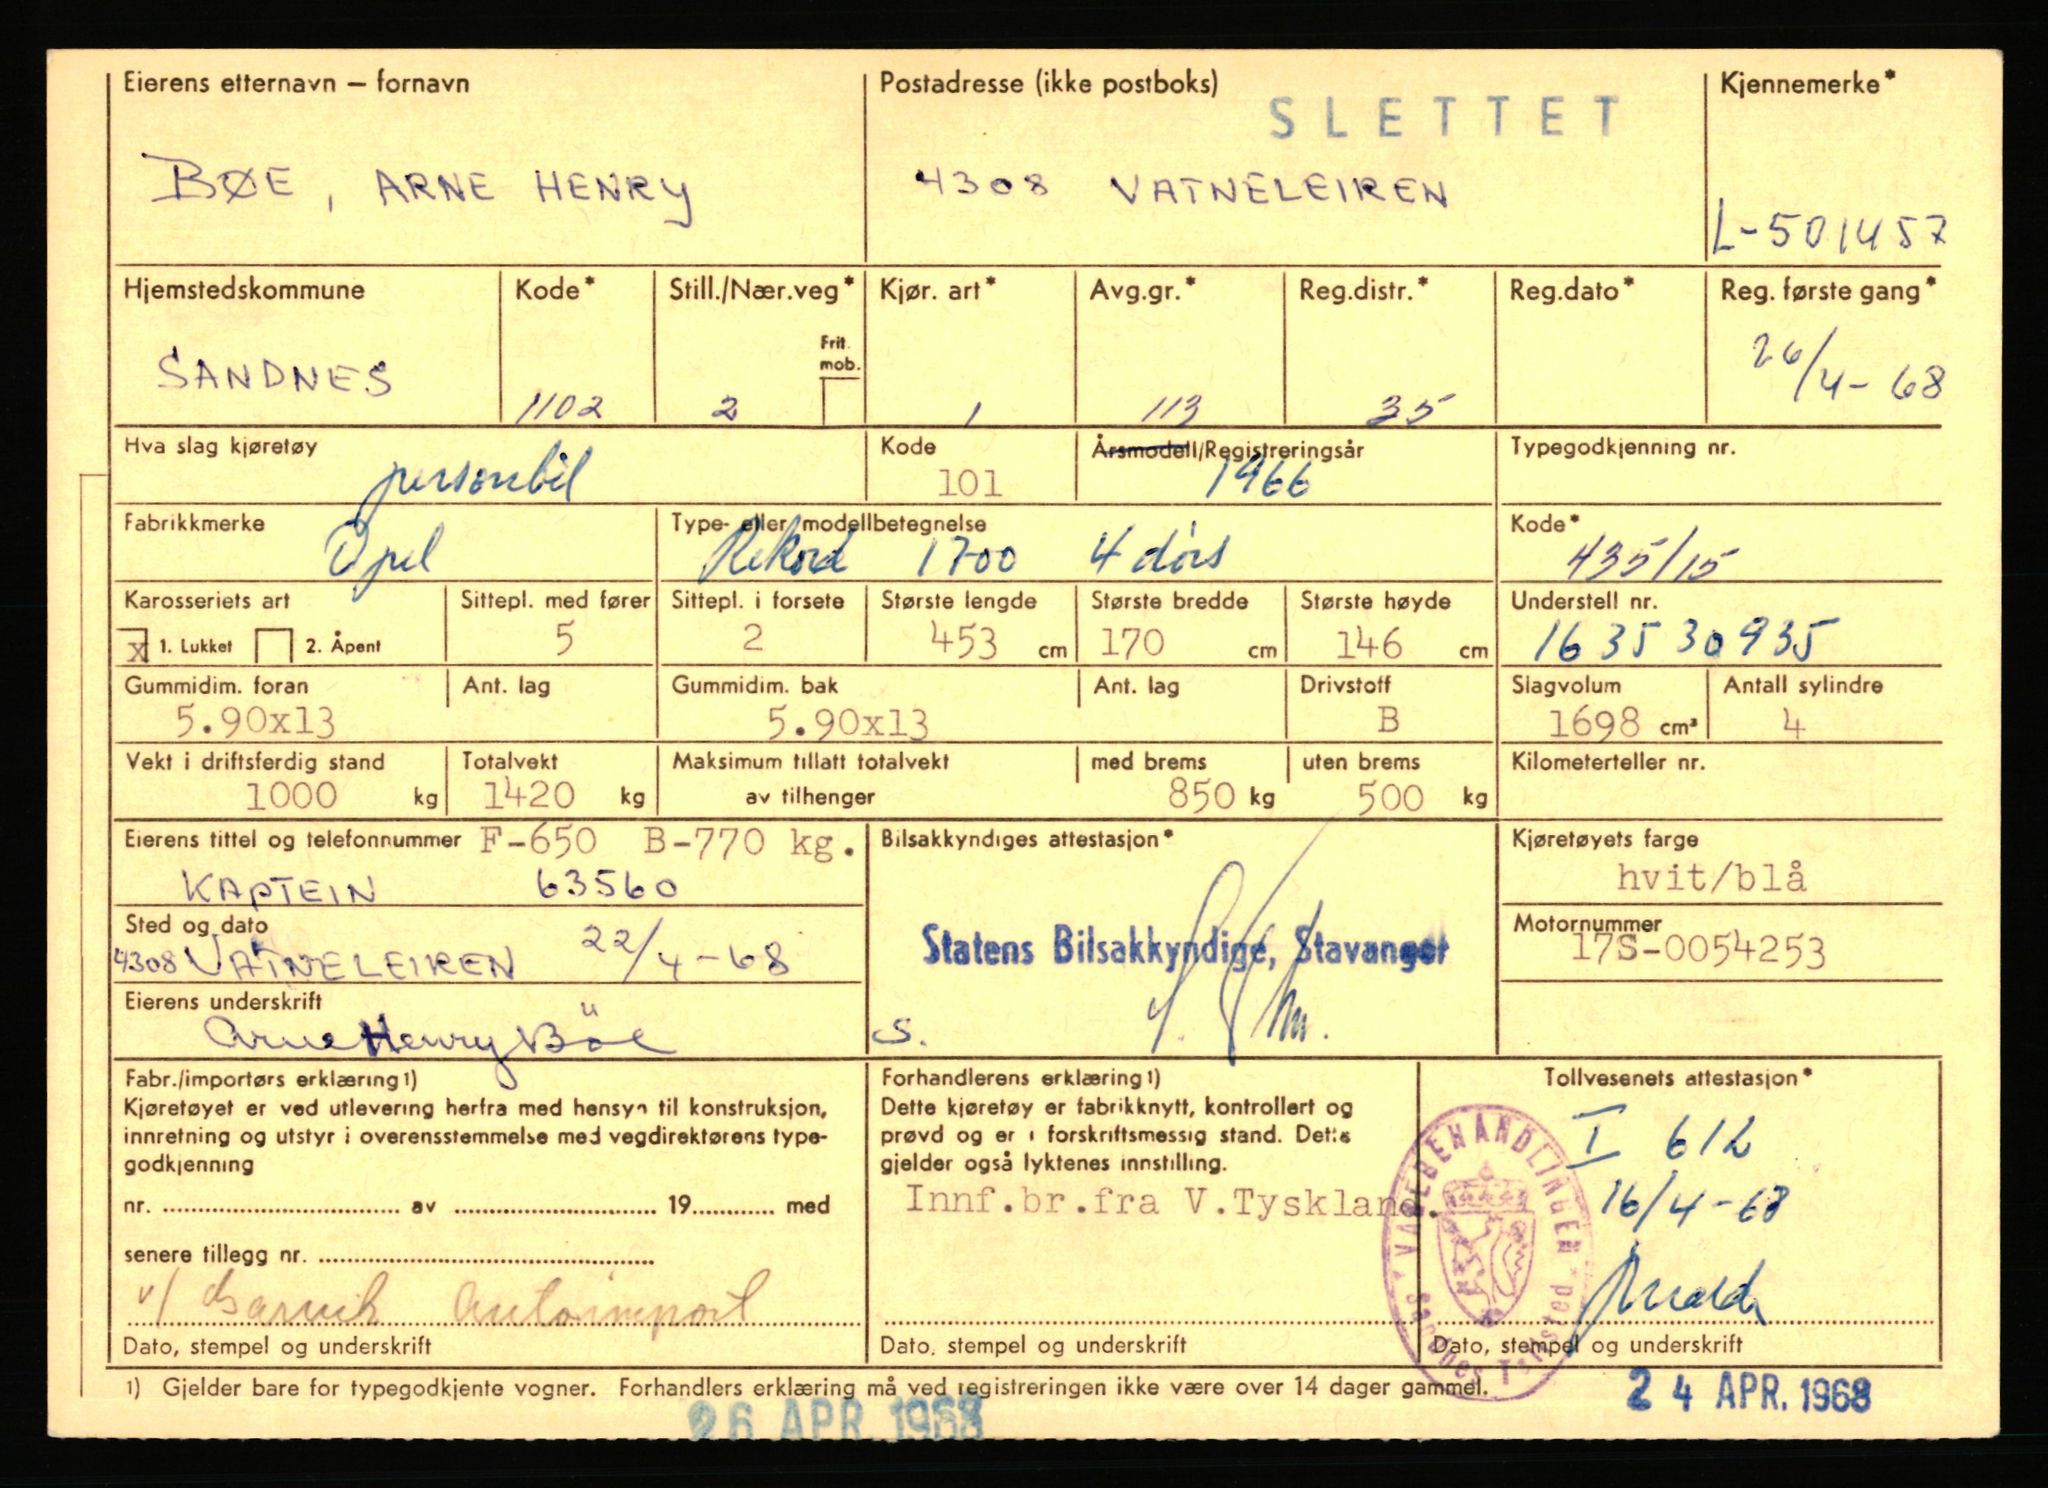 Eierens etternavn – fornavn
Postadresse (ikke postboks)
Kjennemerke*
SLETTET
BØE, ARNE HENRY
4308 VATNELEIREN
L-501457
Hjemstedskommune
Kode*
Still./Nær.veg*
Kjør. art*
Avg.gr.*
Reg.distr.*
Reg.dato*
Reg. første gang*
Frit. mob.
SANDNES
1102
2
1
113
35
26/4-68
Hva slag kjøretøy
Kode
Årsmodell/Registreringsår
Typegodkjenning nr.
personbil
101
1966
Fabrikkmerke
Type- eller modellbetegnelse
Kode*
Opel
Rekord 1700 4 dørs
435/15
Karosseriets art
Sittepl. med fører
Sittepl. i forsete
Største lengde
Største bredde
Største høyde
Understell nr.
x 1. Lukket 2. Åpent
5
2
453 cm
170 cm
146 cm
163530935
Gummidim. foran
Ant. lag
Gummidim. bak
Ant. lag
Drivstoff
Slagvolum
Antall sylindre
5.90x13
5.90x13
B
1698 cm³
4
Vekt i driftsferdig stand
Totalvekt
Maksimum tillatt totalvekt
med brems
uten brems
Kilometerteller nr.
1000 kg
1420 kg
av tilhenger
850 kg
500 kg
Eierens tittel og telefonnummer F-650 B-770 kg.
Bilsakkyndiges attestasjon*
Kjøretøyets farge
KAPTEIN 63560
hvit/blå
Sted og dato
Motornummer
4308 VATNELEIREN 22/4-68
Statens Bilsakkyndige, Stavanger
17S-0054253
Eierens underskrift
Arne Henry Böe
S.
Fabr./importørs erklæring 1)
Forhandlerens erklæring 1)
Tollvesenets attestasjon*
Kjøretøyet er ved utlevering herfra med hensyn til konstruksjon,
innretning og utstyr i overensstemmelse med vegdirektørens type-
godkjenning
Dette kjøretøy er fabrikknytt, kontrollert og
prøvd og er i forskriftsmessig stand. Dette
gjelder også lyktenes innstilling.
I 612
16/4-68
VAREBEHANDLINGEN
Sandnes Tollsted
nr. av 19 med
Innf.br.fra V.Tyskland.
senere tillegg nr.
v/ Garvik Autoimport
Dato, stempel og underskrift
Dato, stempel og underskrift
Dato, stempel og underskrift
1) Gjelder bare for typegodkjente vogner. Forhandlers erklæring må ved registreringen ikke være over 14 dager gammel.
24 APR. 1968
26 APR. 1968